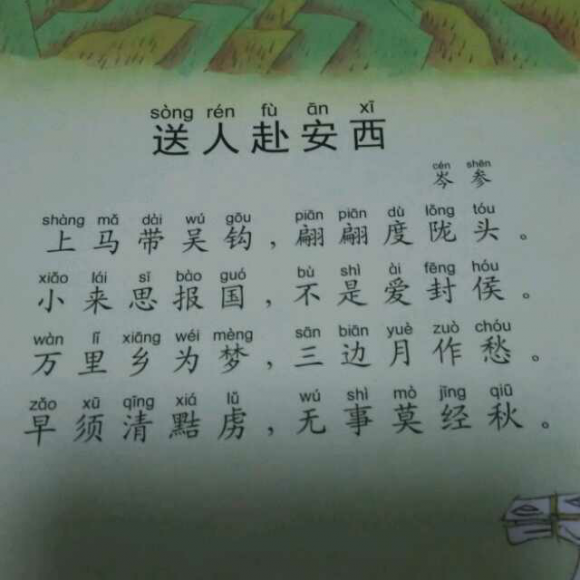 sòng rén fù ān xī
送人赴安西
cén shēn
岑参
shàng mǎ dài wú gōu piān piān dù lǒng tóu
上马带吴钩，翩翩度陇头。
xiǎo lái sī bào guó bù shì ài fēng hóu
小来思报国，不是爱封侯。
wàn lǐ xiāng wéi mèng sān biān yuè zuò chóu
万里乡为梦，三边月作愁。
zǎo xū qīng xiá lǔ wú shì mò jīng qiū
早须清黠虏，无事莫经秋。